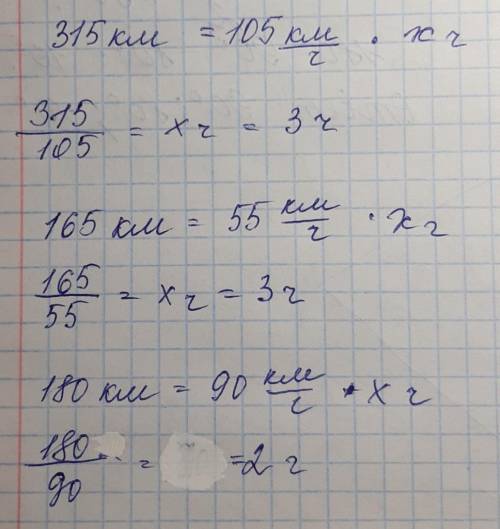 315 км = 105 км/ч · х ч
315/105 = х ч = 3 ч
165 км = 55 км/ч · х ч
165/55 = х ч = 3 ч
180 км = 90 км/ч · х ч
180/90 = =2 ч